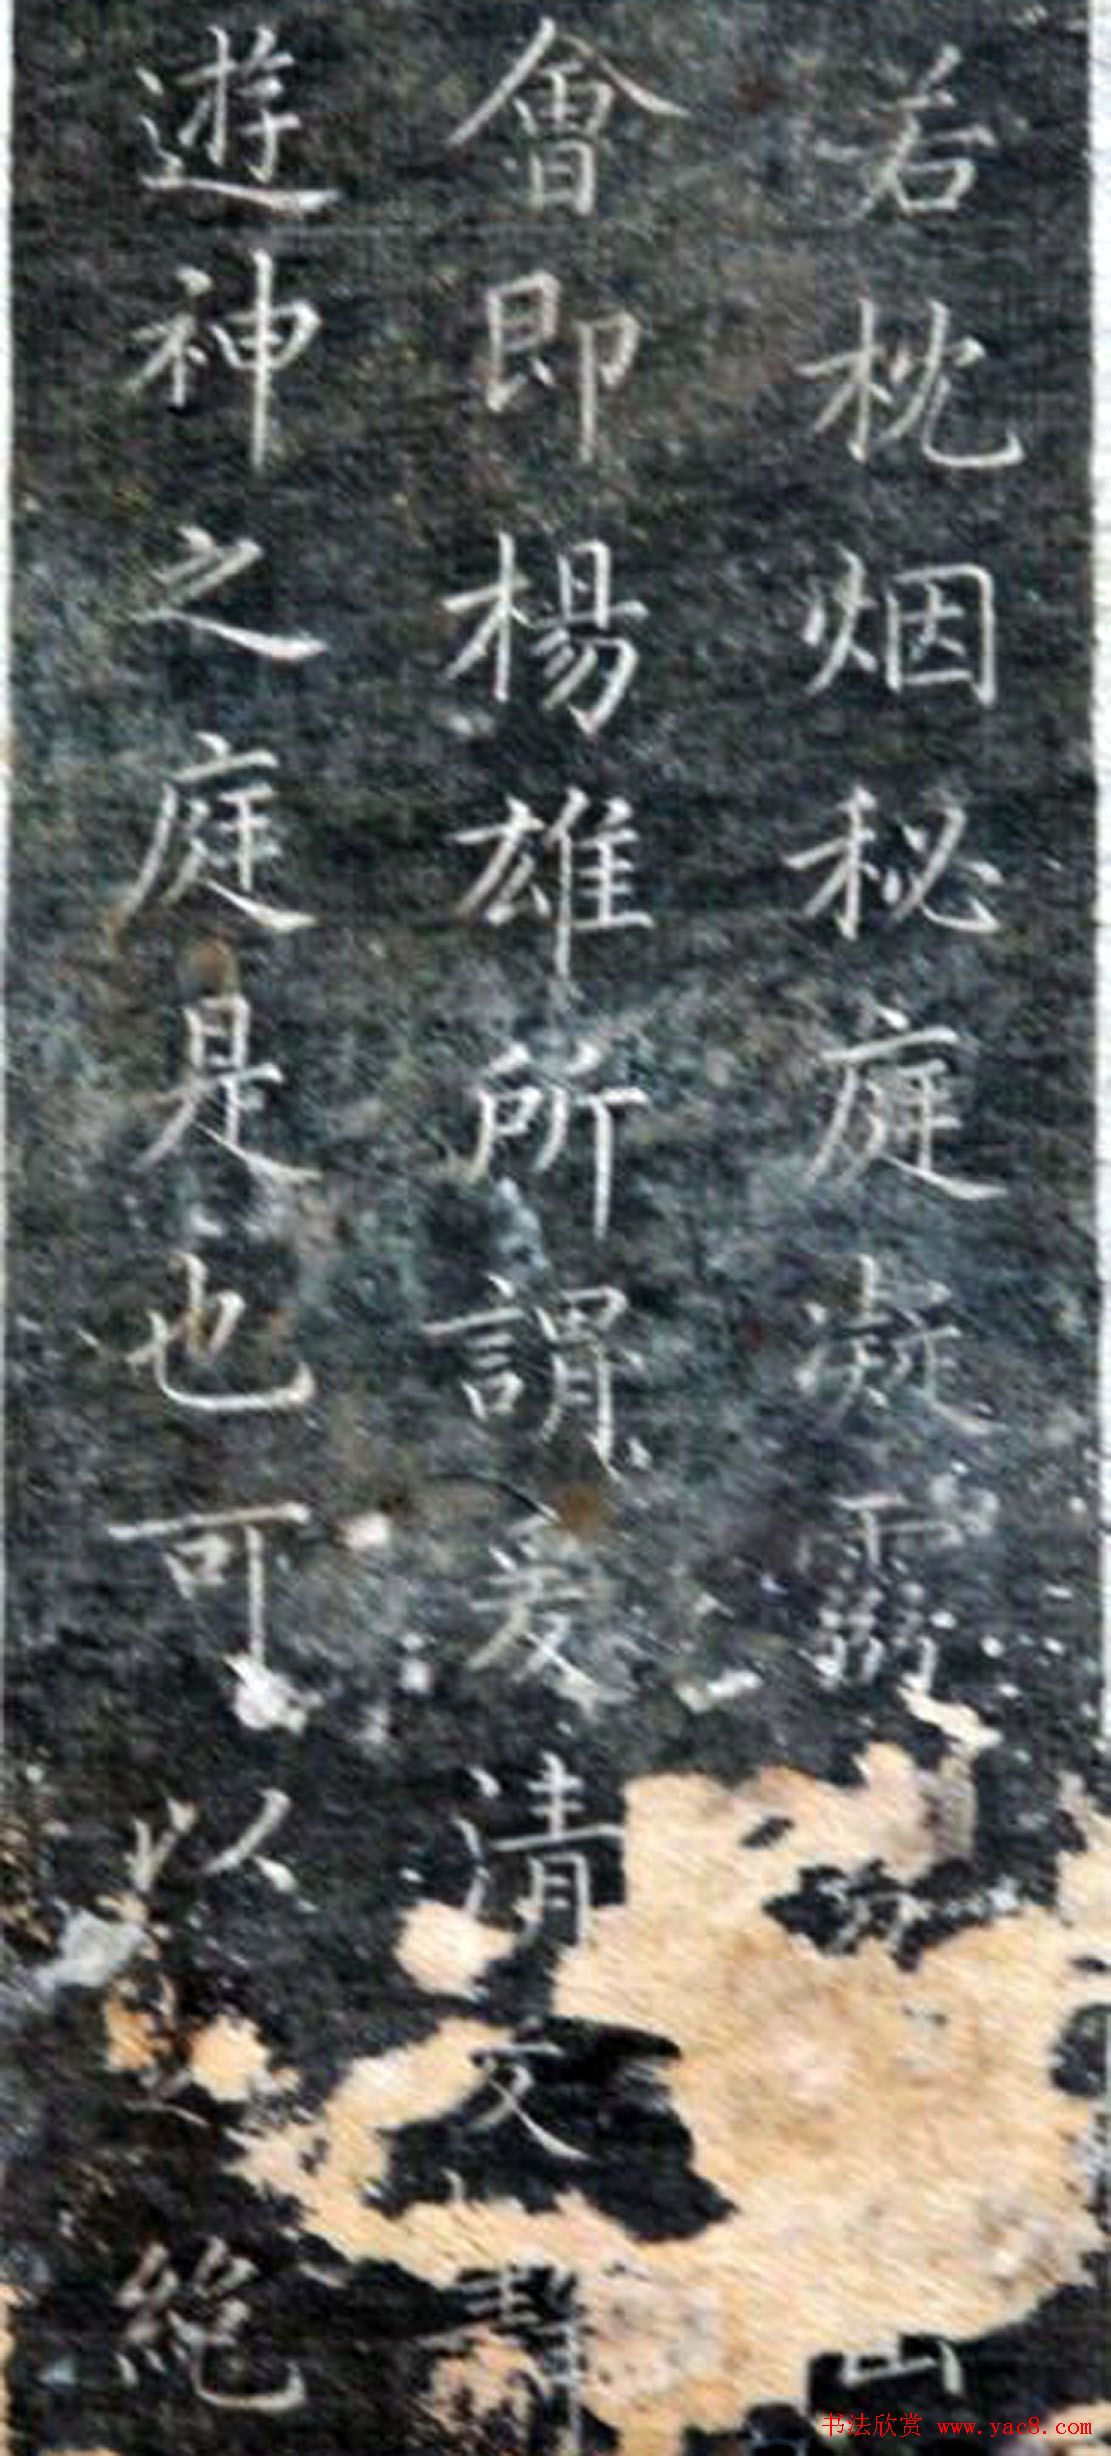 若枕烟秘庭凝霄
會即楊雄所謂爰清爰靜
遊神之庭是也可以絕
书法欣赏 www.yac8.com